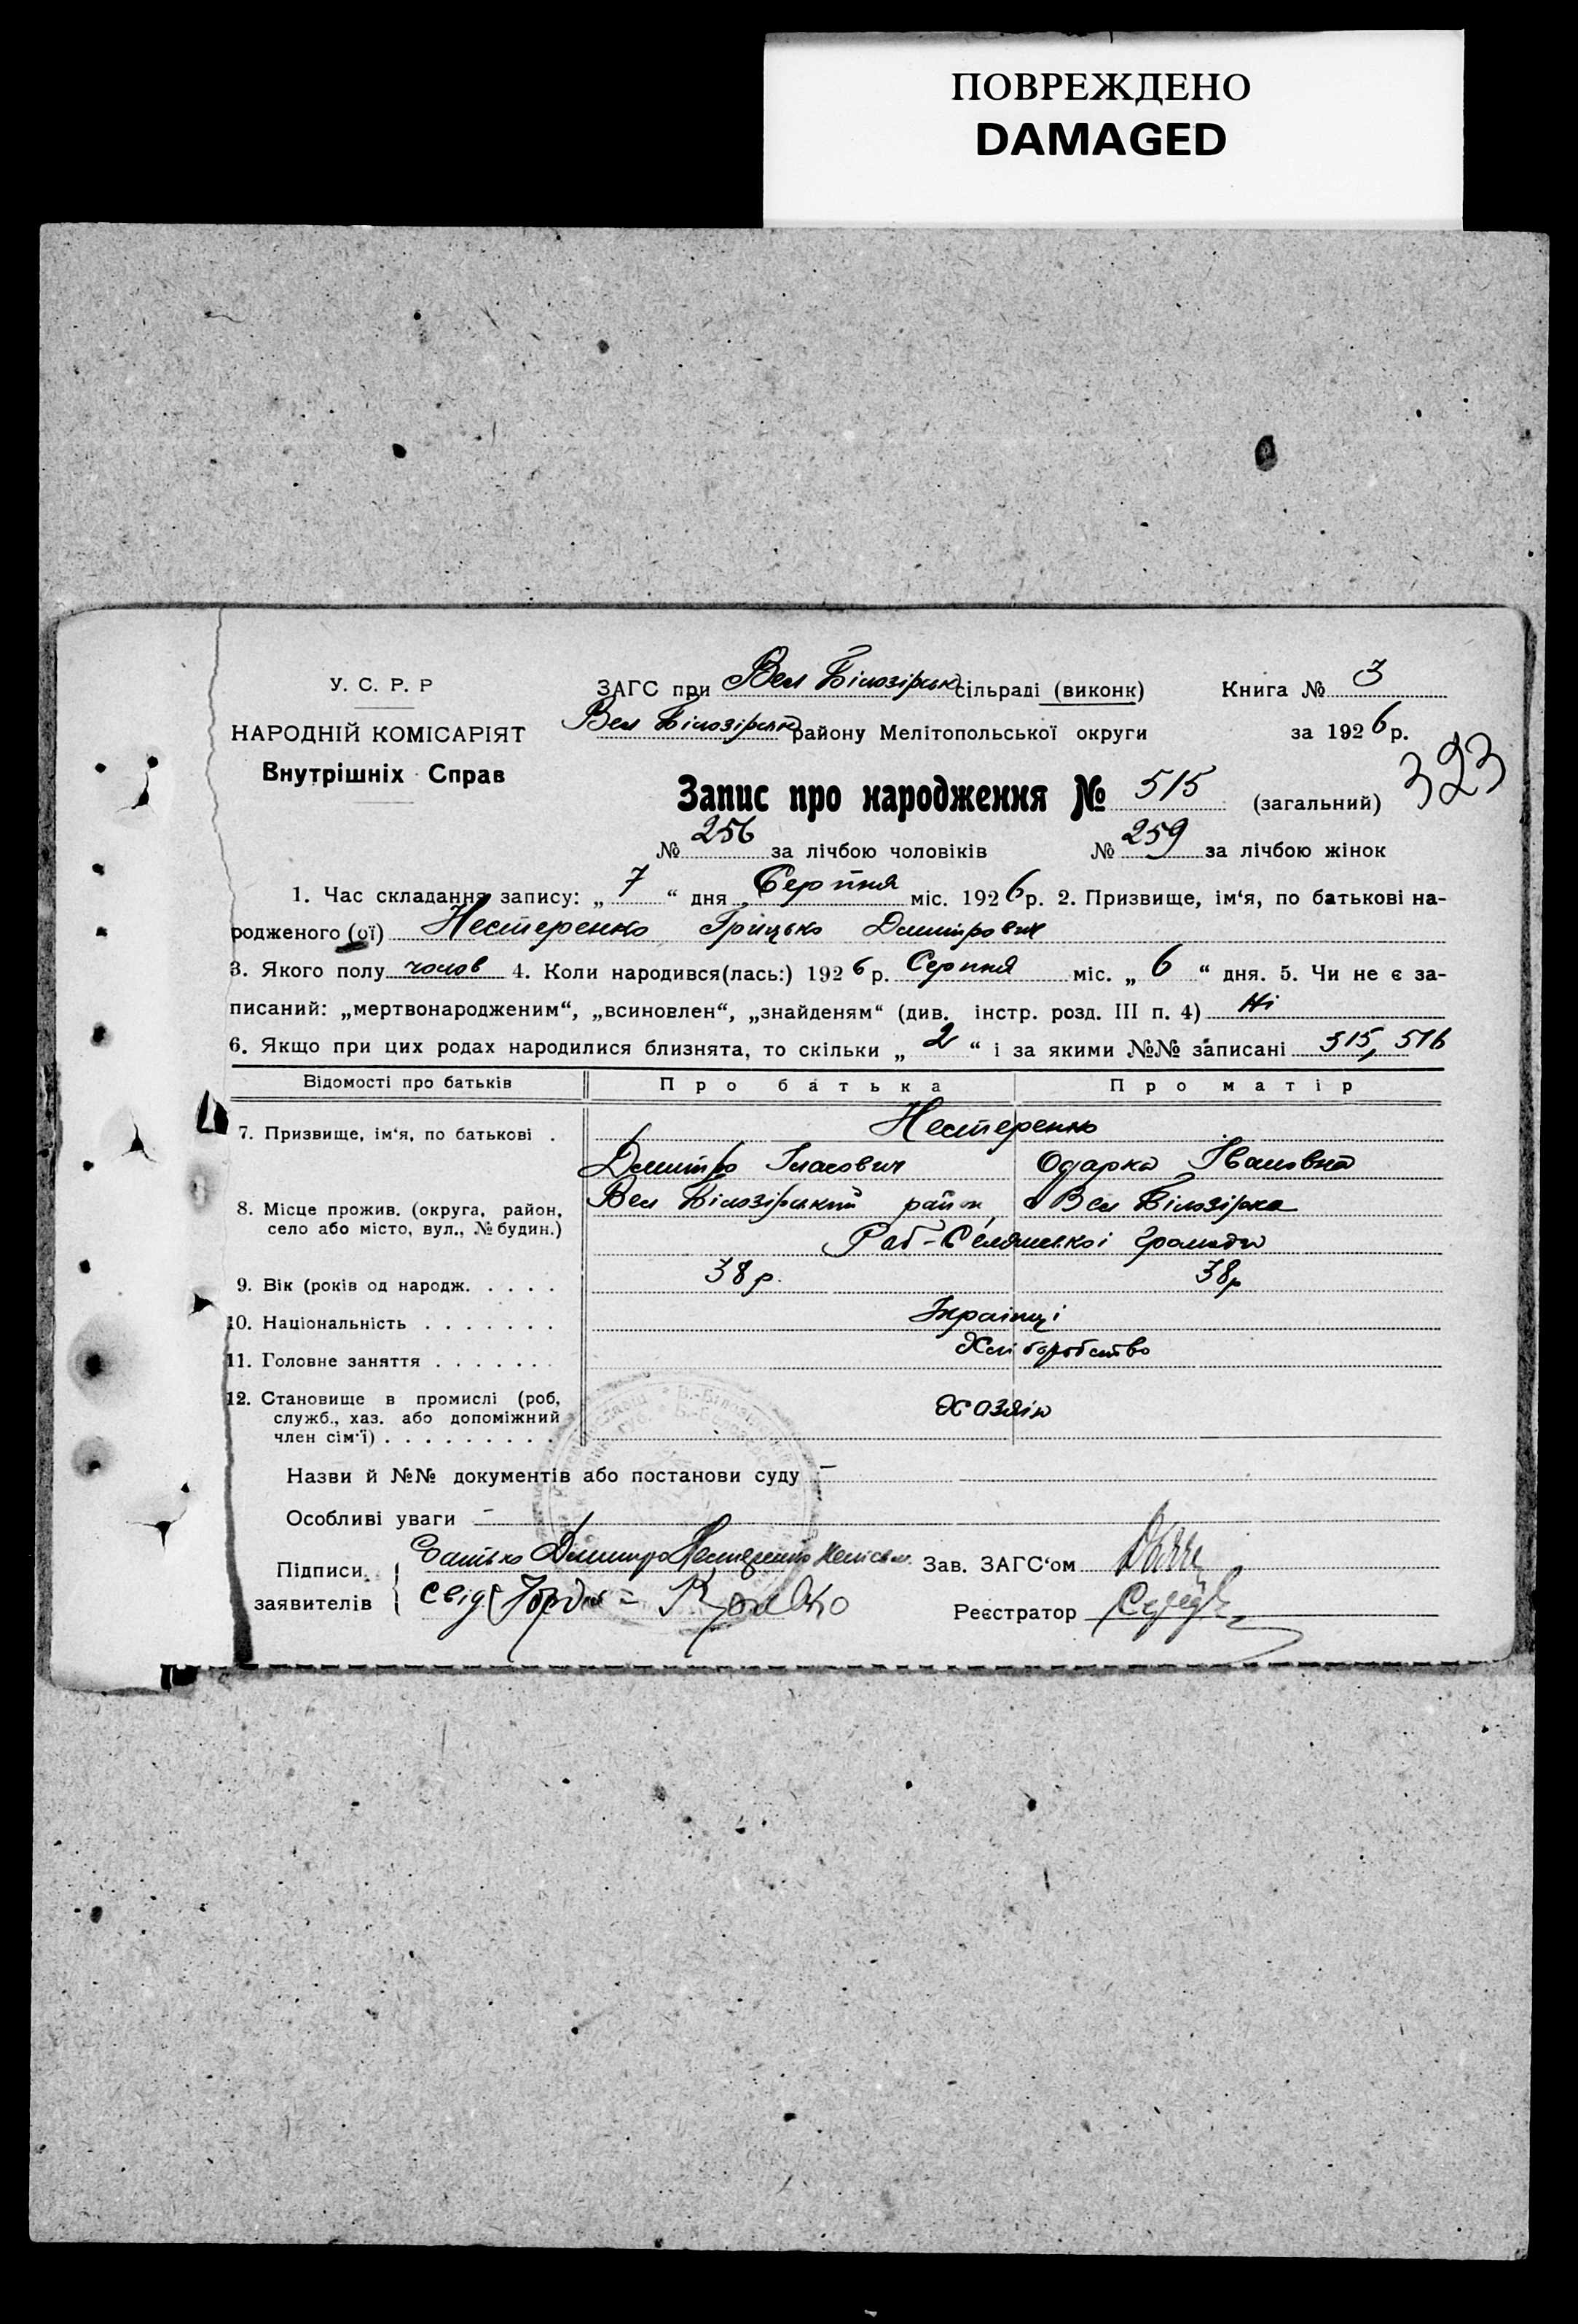 ПОВРЕЖДЕНО
DAMAGED
У. С. Р. Р
НАРОДНІЙ КОМІСАРІЯТ
Внутрішніх Справ
ЗАГС при Вел Білозірськ сільраді (виконк)
Книга № 3
Вел Білозірськ району Мелітопольської округи
за 1926 р.
323
Запис про народження № 515 (загальний)
№ 256 за лічбою чоловіків № 259 за лічбою жінок
1. Час складання запису: „ 7 “ дня „ Серпня міс. 1926 р. 2. Призвище, ім‘я, по батькові на-
родженого (ої) Нестеренко Грицько Дмитрович
3. Якого полу чолов 4. Коли народився(лась:) 1926 р. Серпня міс. „ 6 “ дня. 5. Чи не є за-
писаний: „мертвонародженим“, „всиновлен“, „знайденям“ (див. інстр. розд. III п. 4) Ні
6. Якщо при цих родах народилися близнята, то скільки „ 2 “ і за якими №№ записані 515, 516
Відомості про батьків Про батька Про матір
7. Призвище, ім‘я, по батькові . Нестеренко
Дмитро Одарка Івановна
8. Місце прожив. (округа, район, село або місто, вул., № будин.) Вел Білозірський район, с Вел Білозірка
Селянської громади
9. Вік (років од народж. . . . . 38 р. 38 р
10. Національність . . . . . . . Українці
11. Головне заняття . . . . . . . Хліборобство
12. Становище в промислі (роб, служб., хаз. або допоміжний член сім‘ї) . . . . . . . . . Хозяін
Назви й №№ документів або постанови суду —
Особливі уваги —
Підписи заявителів Батько Дмитро Нестеренко
свід
Зав. ЗАГС‘ом
Реєстратор